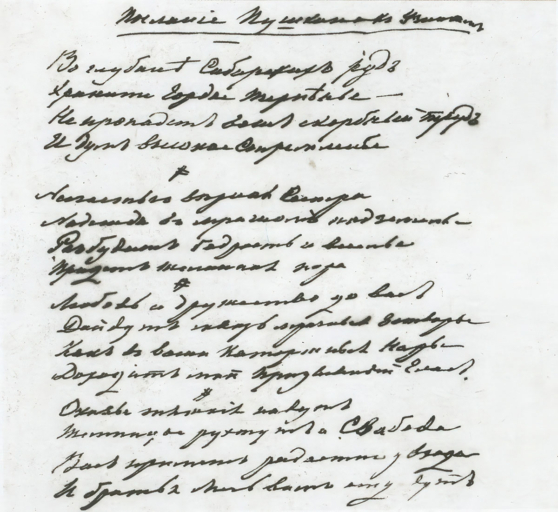 Посланіе Пушкина къ
Во глубинѣ Сибирскихъ рудъ
Храните Гордое терпѣнье —
Не пропадетъ Вашъ скорбный трудъ
И думъ высокое стремленье
*
Несчастью вѣрная Сестра
Надежда въ мрачномъ подземельи —
Разбудитъ бодрость и веселье
Придетъ желанная пора
*
Любовь и дружество до васъ
Дойдутъ сквозь мрачные затворы
Какъ въ ваши каторжныя норы
Доходитъ мой Гласъ.
*
Оковы тяжкія падутъ
Темницы рухнутъ и Свабода
Васъ приметъ радостно у входа
И братья Мечь вамъ